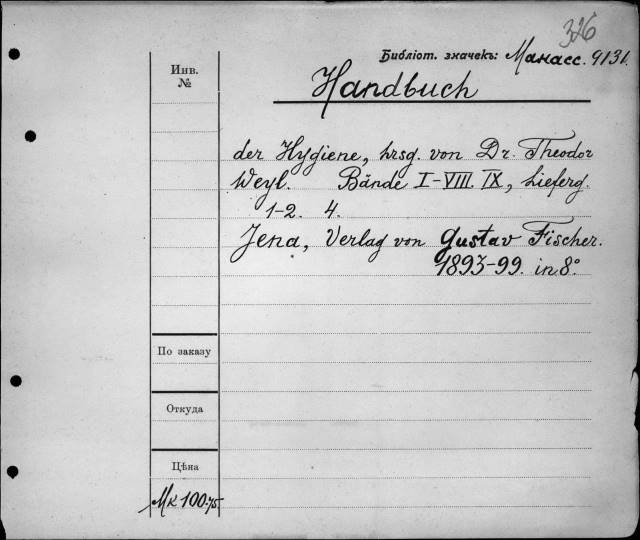 326
Библіот. значекъ: Манасс. 9131.
Инв.
№
Handbuch
der Hygiene, hrsg. von Dr. Theodor
Weyl. Bände I-VIII. IX, Lieferg.
1-2. 4.
Jena, Verlag von Gustav Fischer.
1893-99. in 8°.
По заказу
Откуда
Цѣна
Mk 100.75.